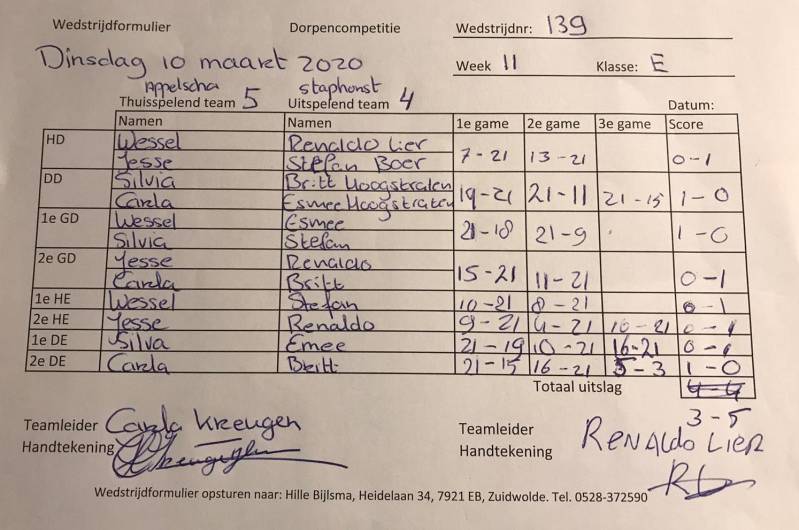 Wedstrijdformulier Dorpencompetitie Wedstrijdnr: 139
Dinsdag 10 maart 2020 Week 11 Klasse: E
Appelscha staphonst
Thuisspelend team 5 Uitspelend team 4 Datum:
Namen Namen 1e game 2e game 3e game Score
HD Wessel Renaldo Lier
Jesse Stefan Boer 7-21 13-21 0-1
DD Silvia Britt Hoogstraten
Carla Esmee Hoogstraten 19-21 21-11 21-15 1-0
1e GD Wessel Esmee
Silvia Stefan 21-18 21-9 1-0
2e GD Jesse Renaldo
Carla Britt 15-21 11-21 0-1
1e HE Wessel Stefan 10-21 8-21 0-1
2e HE Jesse Renaldo 9-21 21 10-21 0-1
1e DE Silva Emee 21-19 10-21 16-21 0-1
2e DE Carla Britt 21-15 16-21 3 1-0
Totaal uitslag 4-4
3-5
Teamleider Carla Kreugen Teamleider RENALDO LIER
Handtekening Handtekening
Wedstrijdformulier opsturen naar: Hille Bijlsma, Heidelaan 34, 7921 EB, Zuidwolde. Tel. 0528-372590